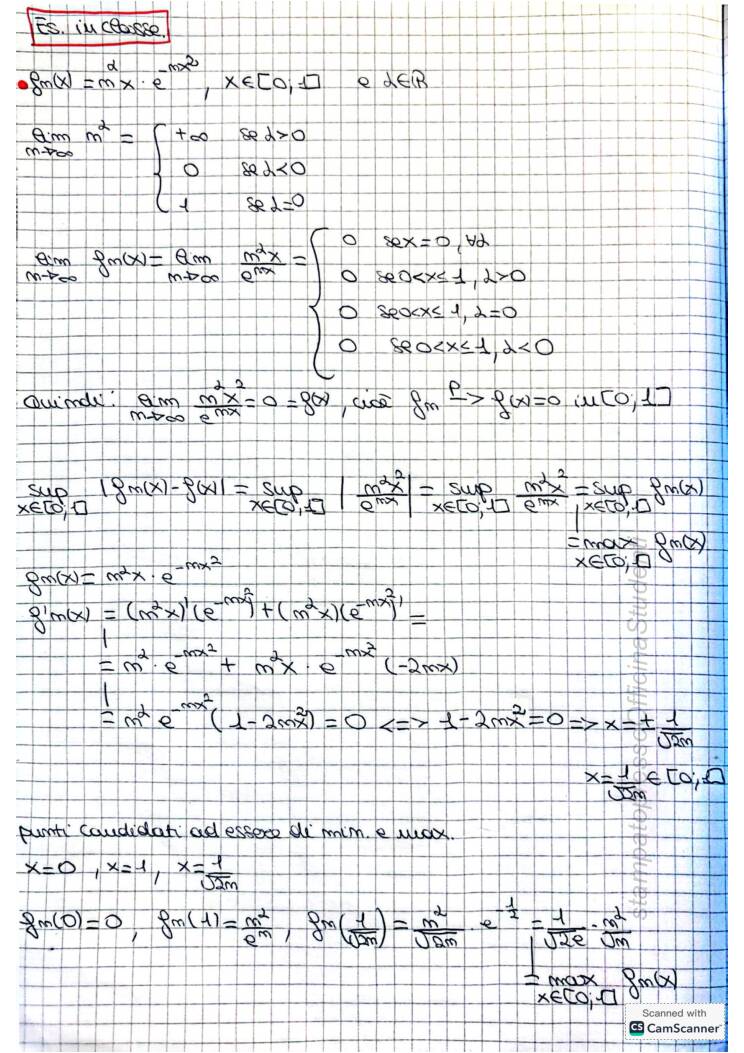 Es. in classe.
• fn(x) = n^α x · e^(-nx²), x∈[0;1] e α∈ℝ
lim n→∞ n^α = { +∞ se α>0
0 se α<0
1 se α=0
lim n→∞ fn(x) = lim n→∞ n^α x / e^(nx) = { 0 se x=0, ∀α
0 se 0<x≤1, α>0
0 se 0<x≤1, α=0
0 se 0<x≤1, α<0
Quindi: lim n→∞ n^α x² / e^(nx) = 0 = f(x), cioè fn -P-> f(x)=0 in [0;1]
sup x∈[0;1] |fn(x)-f(x)| = sup x∈[0;1] | n^α x² / e^(nx) | = sup x∈[0;1] n^α x² / e^(nx) = sup x∈[0;1] fn(x)
= max x∈[0;1] fn(x)
fn(x) = n^α x · e^(-nx²)
f'n(x) = (n^α x)'(e^(-nx²)) + (n^α x)(e^(-nx²))' =
= n^α · e^(-nx²) + n^α x · e^(-nx²) (-2nx)
= n^α e^(-nx²) (1-2nx²) = 0 <=> 1-2nx² = 0 => x = ± 1/√2n
x = 1/√2n ∈ [0;1]
punti candidati ad essere di min. e max.
x=0, x=1, x= 1/√2n
fn(0)=0, fn(1)= n^α / e^n, fn(1/√2n) = n^α/√2n · e^(-1/2) = 1/√2e · n^α/√n
= max x∈[0;1] fn(x)
stampato presso OfficinaStudenti
Scanned with
CS CamScanner